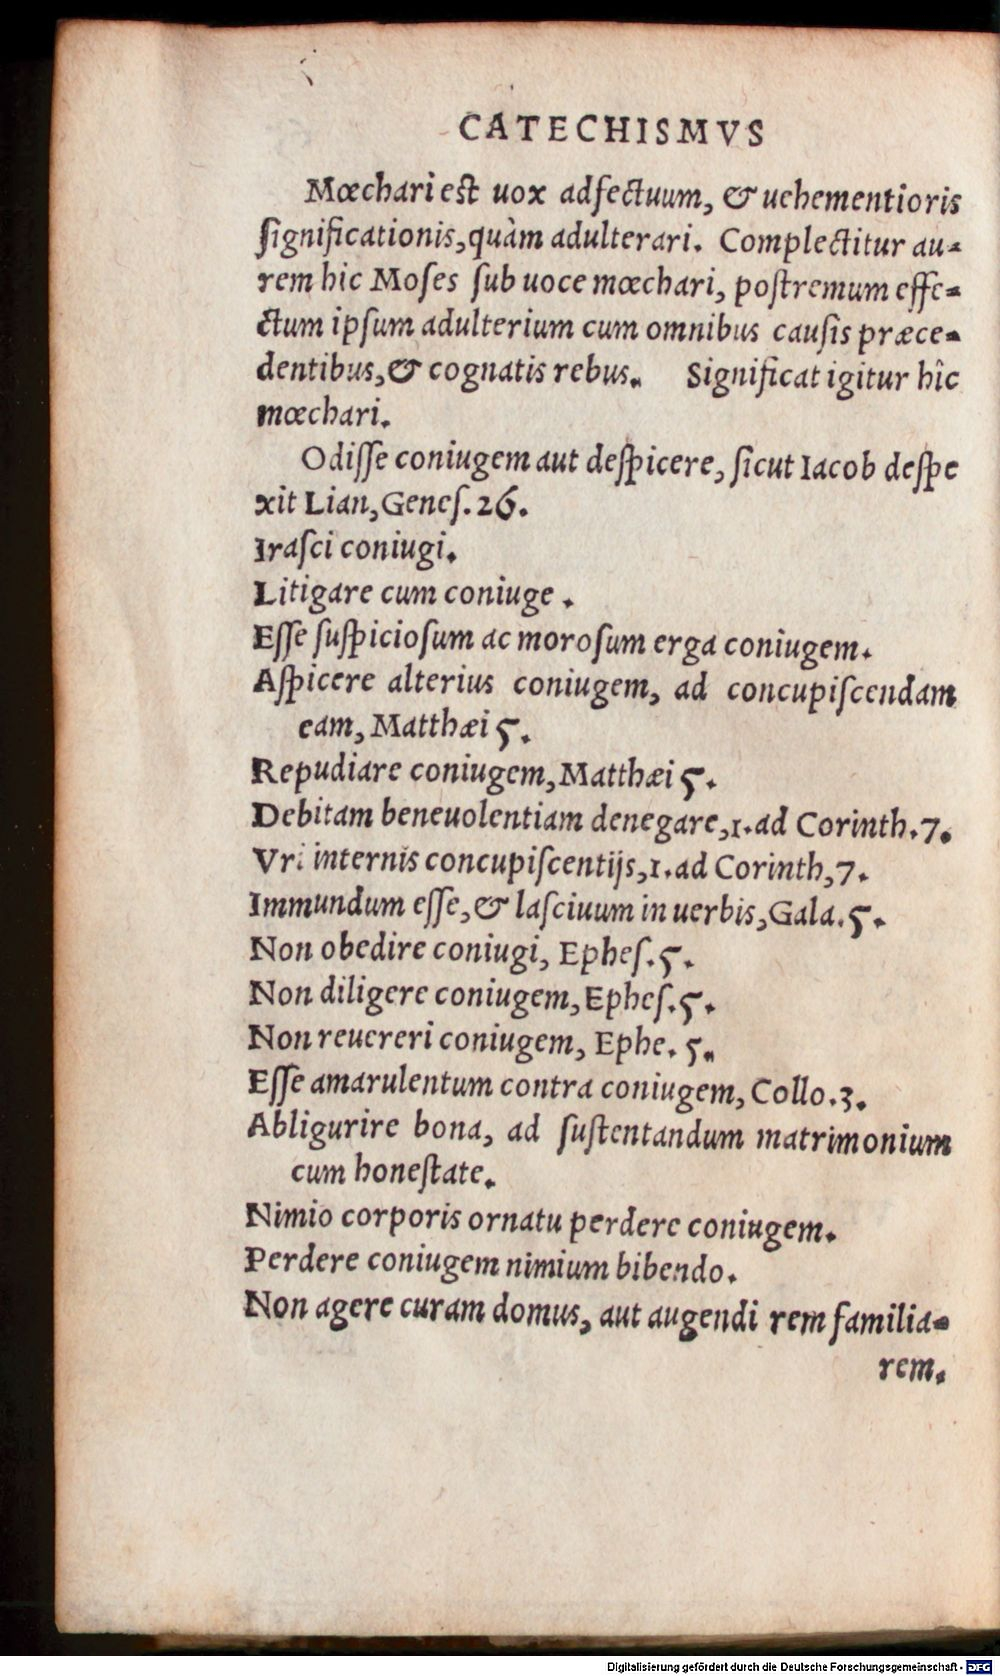 CATECHISMVS
Mœchari est uox adfectuum, & uehementioris
significationis, quàm adulterari. Complectitur au-
rem hic Moses sub uoce mœchari, postremum effe-
ctum ipsum adulterium cum omnibus causis præce-
dentibus, & cognatis rebus. Significat igitur hîc
mœchari.
Odisse coniugem aut despicere, sicut Iacob despe
xit Lian, Genes. 26.
Irasci coniugi.
Litigare cum coniuge.
Esse suspiciosum ac morosum erga coniugem.
Aspicere alterius coniugem, ad concupiscendam
eam, Matthæi 5.
Repudiare coniugem, Matthæi 5.
Debitam beneuolentiam denegare, 1. ad Corinth. 7.
Vri internis concupiscentijs, 1. ad Corinth, 7.
Immundum esse, & lasciuum in uerbis, Gala. 5.
Non obedire coniugi, Ephes. 5.
Non diligere coniugem, Ephes. 5.
Non reuereri coniugem, Ephe. 5.
Esse amarulentum contra coniugem, Collo. 3.
Abligurire bona, ad sustentandum matrimonium
cum honestate.
Nimio corporis ornatu perdere coniugem.
Perdere coniugem nimium bibendo.
Non agere curam domus, aut augendi rem familia-
rem.
Digitalisierung gefördert durch die Deutsche Forschungsgemeinschaft - DFG